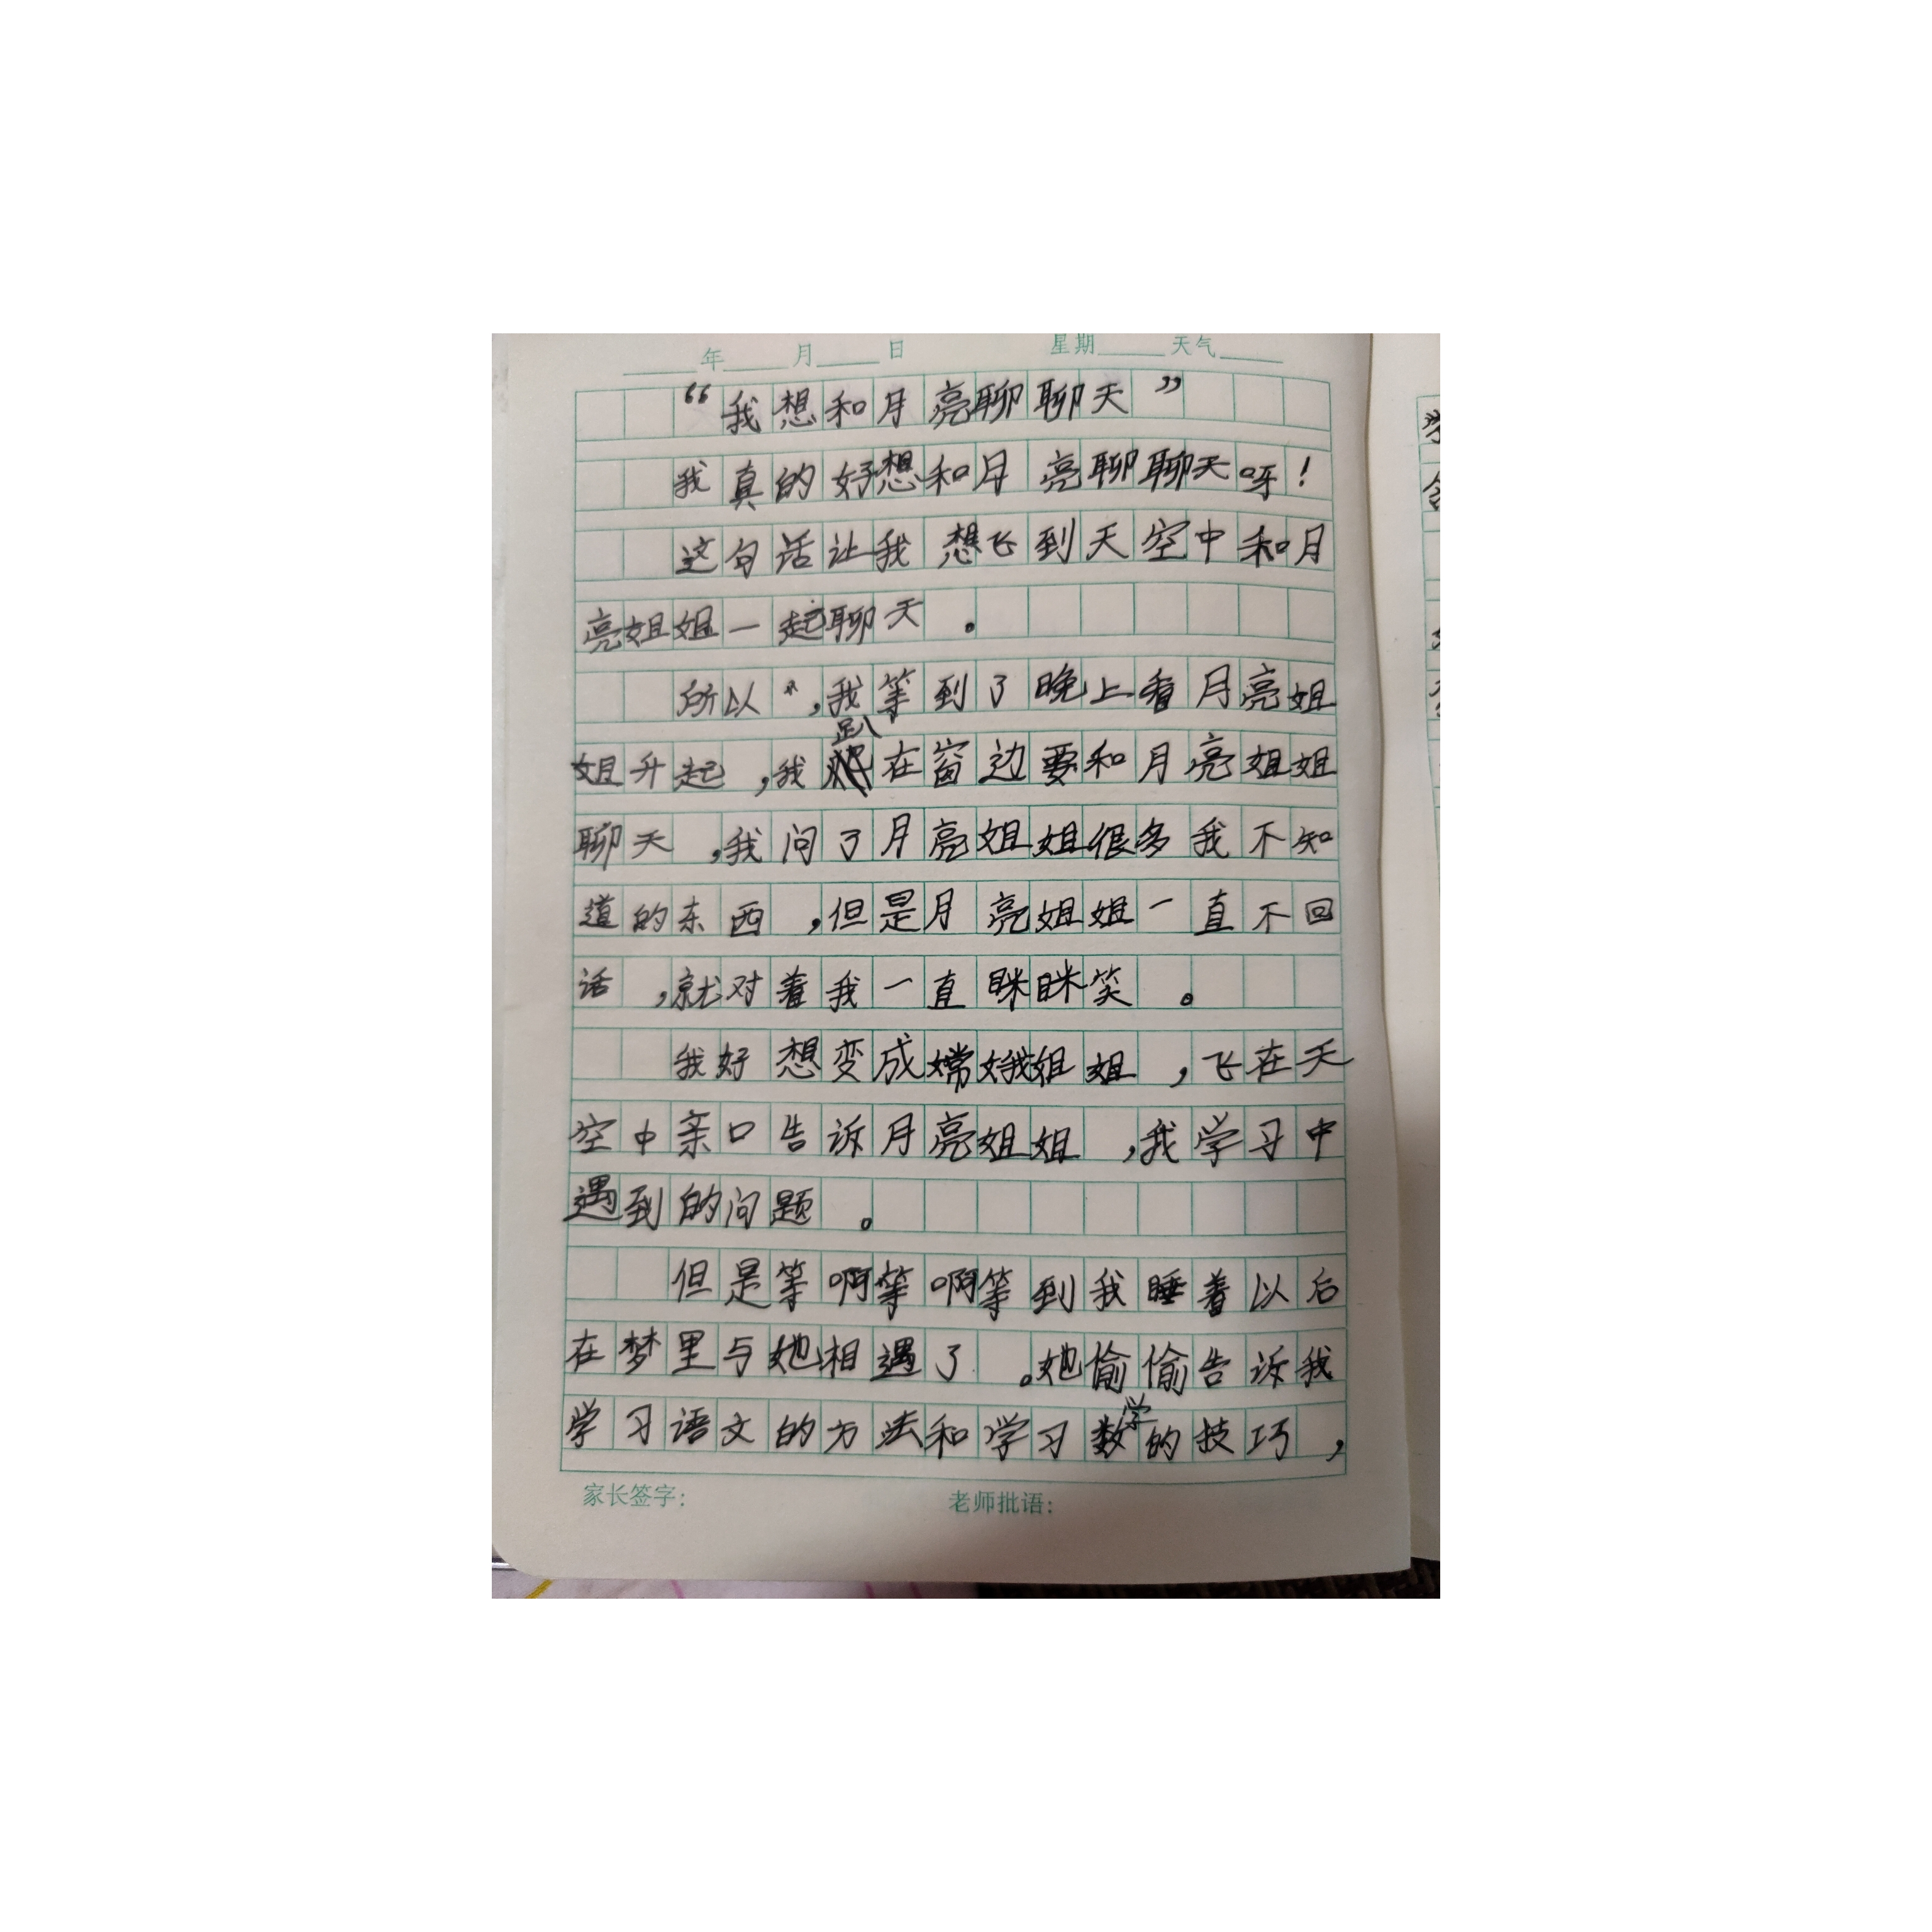 年 月 日 星期 天气
“我想和月亮聊聊天”
我真的好想和月亮聊聊天呀！
这句话让我想飞到天空中和月
亮姐姐一起聊天。
所以，我等到了晚上看月亮姐
姐升起，我趴在窗边要和月亮姐姐
聊天，我问了月亮姐姐很多我不知
道的东西，但是月亮姐姐一直不回
话，就对着我一直眯眯笑。
我好想变成嫦娥姐姐，飞在天
空中亲口告诉月亮姐姐，我学习中
遇到的问题。
但是等啊等啊等到我睡着以后
在梦里与她相遇了。她偷偷告诉我
学习语文的方法和学习数学的技巧，
家长签字： 老师批语：